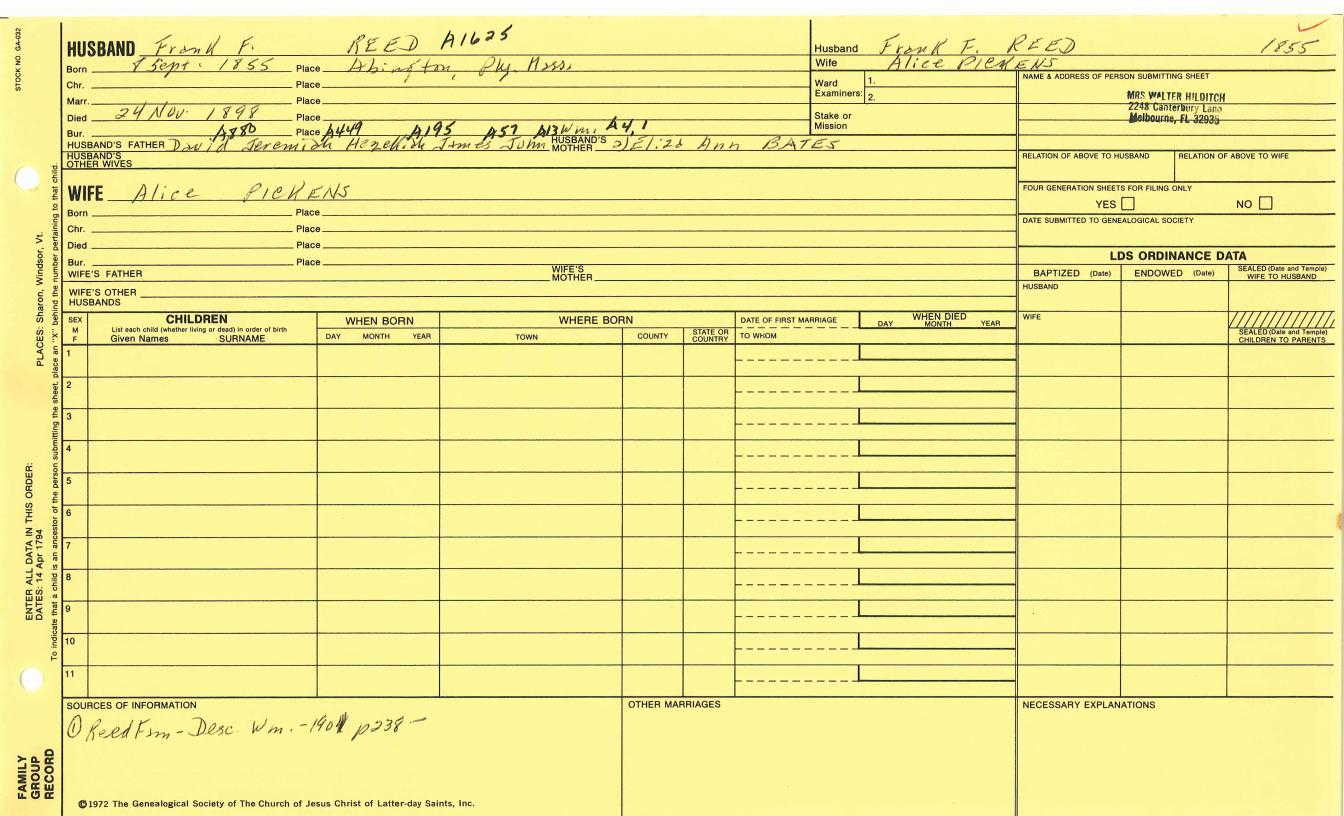 STOCK NO. GA-032
HUSBAND Frank F. REED A1625
Born 8 Sept. 1855 Place Abington, Ply. Mass.
Chr. Place
Marr. Place
Died 24 Nov. 1898 Place
Bur. Place
A880 A449 A195 A57 A13 Wm. A4,1
HUSBAND'S FATHER David Jeremiah Hezekiah James John HUSBAND'S MOTHER 2) Eliza Ann BATES
HUSBAND'S OTHER WIVES
WIFE Alice PICKENS
Born Place
Chr. Place
Died Place
Bur. Place
WIFE'S FATHER WIFE'S MOTHER
WIFE'S OTHER HUSBANDS
Husband Frank F. REED 1855
Wife Alice PICKENS
Ward Examiners: 1.
2.
Stake or Mission
NAME & ADDRESS OF PERSON SUBMITTING SHEET
MRS WALTER HILDITCH
2248 Canterbury Lane
Melbourne, FL 32935
RELATION OF ABOVE TO HUSBAND RELATION OF ABOVE TO WIFE
FOUR GENERATION SHEETS FOR FILING ONLY
YES NO
DATE SUBMITTED TO GENEALOGICAL SOCIETY
LDS ORDINANCE DATA
BAPTIZED (Date) ENDOWED (Date) SEALED (Date and Temple) WIFE TO HUSBAND
HUSBAND
WIFE
SEALED (Date and Temple) CHILDREN TO PARENTS
SEX M F
CHILDREN
List each child (whether living or dead) in order of birth
Given Names SURNAME
WHEN BORN
DAY MONTH YEAR
WHERE BORN
TOWN COUNTY STATE OR COUNTRY
DATE OF FIRST MARRIAGE
TO WHOM
WHEN DIED
DAY MONTH YEAR
1
2
3
4
5
6
7
8
9
10
11
SOURCES OF INFORMATION
① Reed Fam - Desc. Wm. - 1901 p238 -
OTHER MARRIAGES
NECESSARY EXPLANATIONS
©1972 The Genealogical Society of The Church of Jesus Christ of Latter-day Saints, Inc.
FAMILY GROUP RECORD
ENTER ALL DATA IN THIS ORDER:
DATES: 14 Apr 1794
PLACES: Sharon, Windsor, Vt.
To indicate that a child is an ancestor of the person submitting the sheet, place an "X" behind the number pertaining to that child.